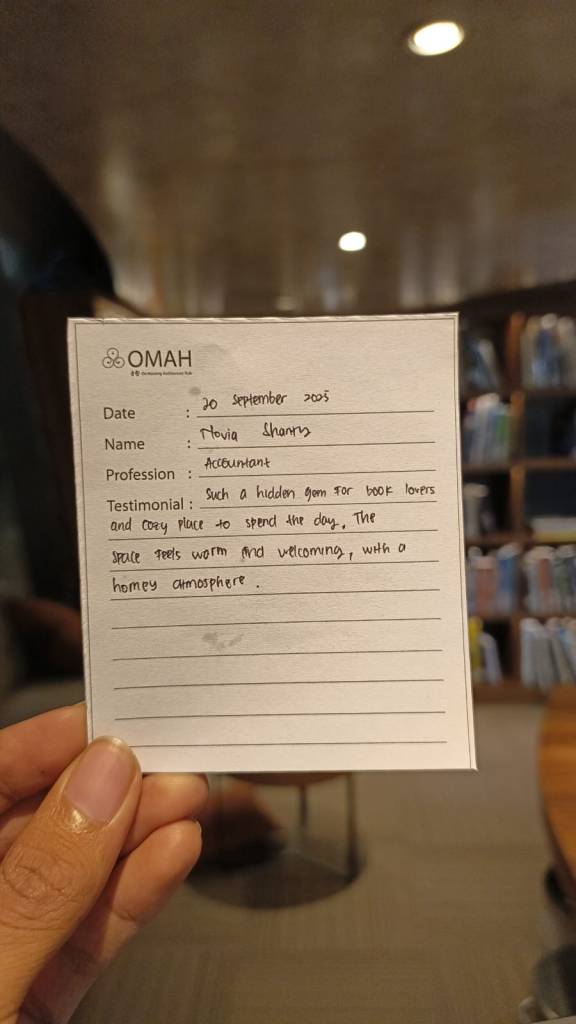 OMAH
Date : 20 September 2025
Name : Novia Shanty
Profession : Accountant
Testimonial : Such a hidden gem for book lovers
and cozy place to spend the day. The
space feels warm and welcoming, with a
homey atmosphere.